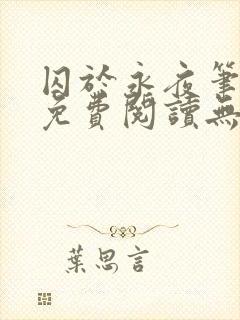 囚於永夜筆
免費閱讀無
葉思言